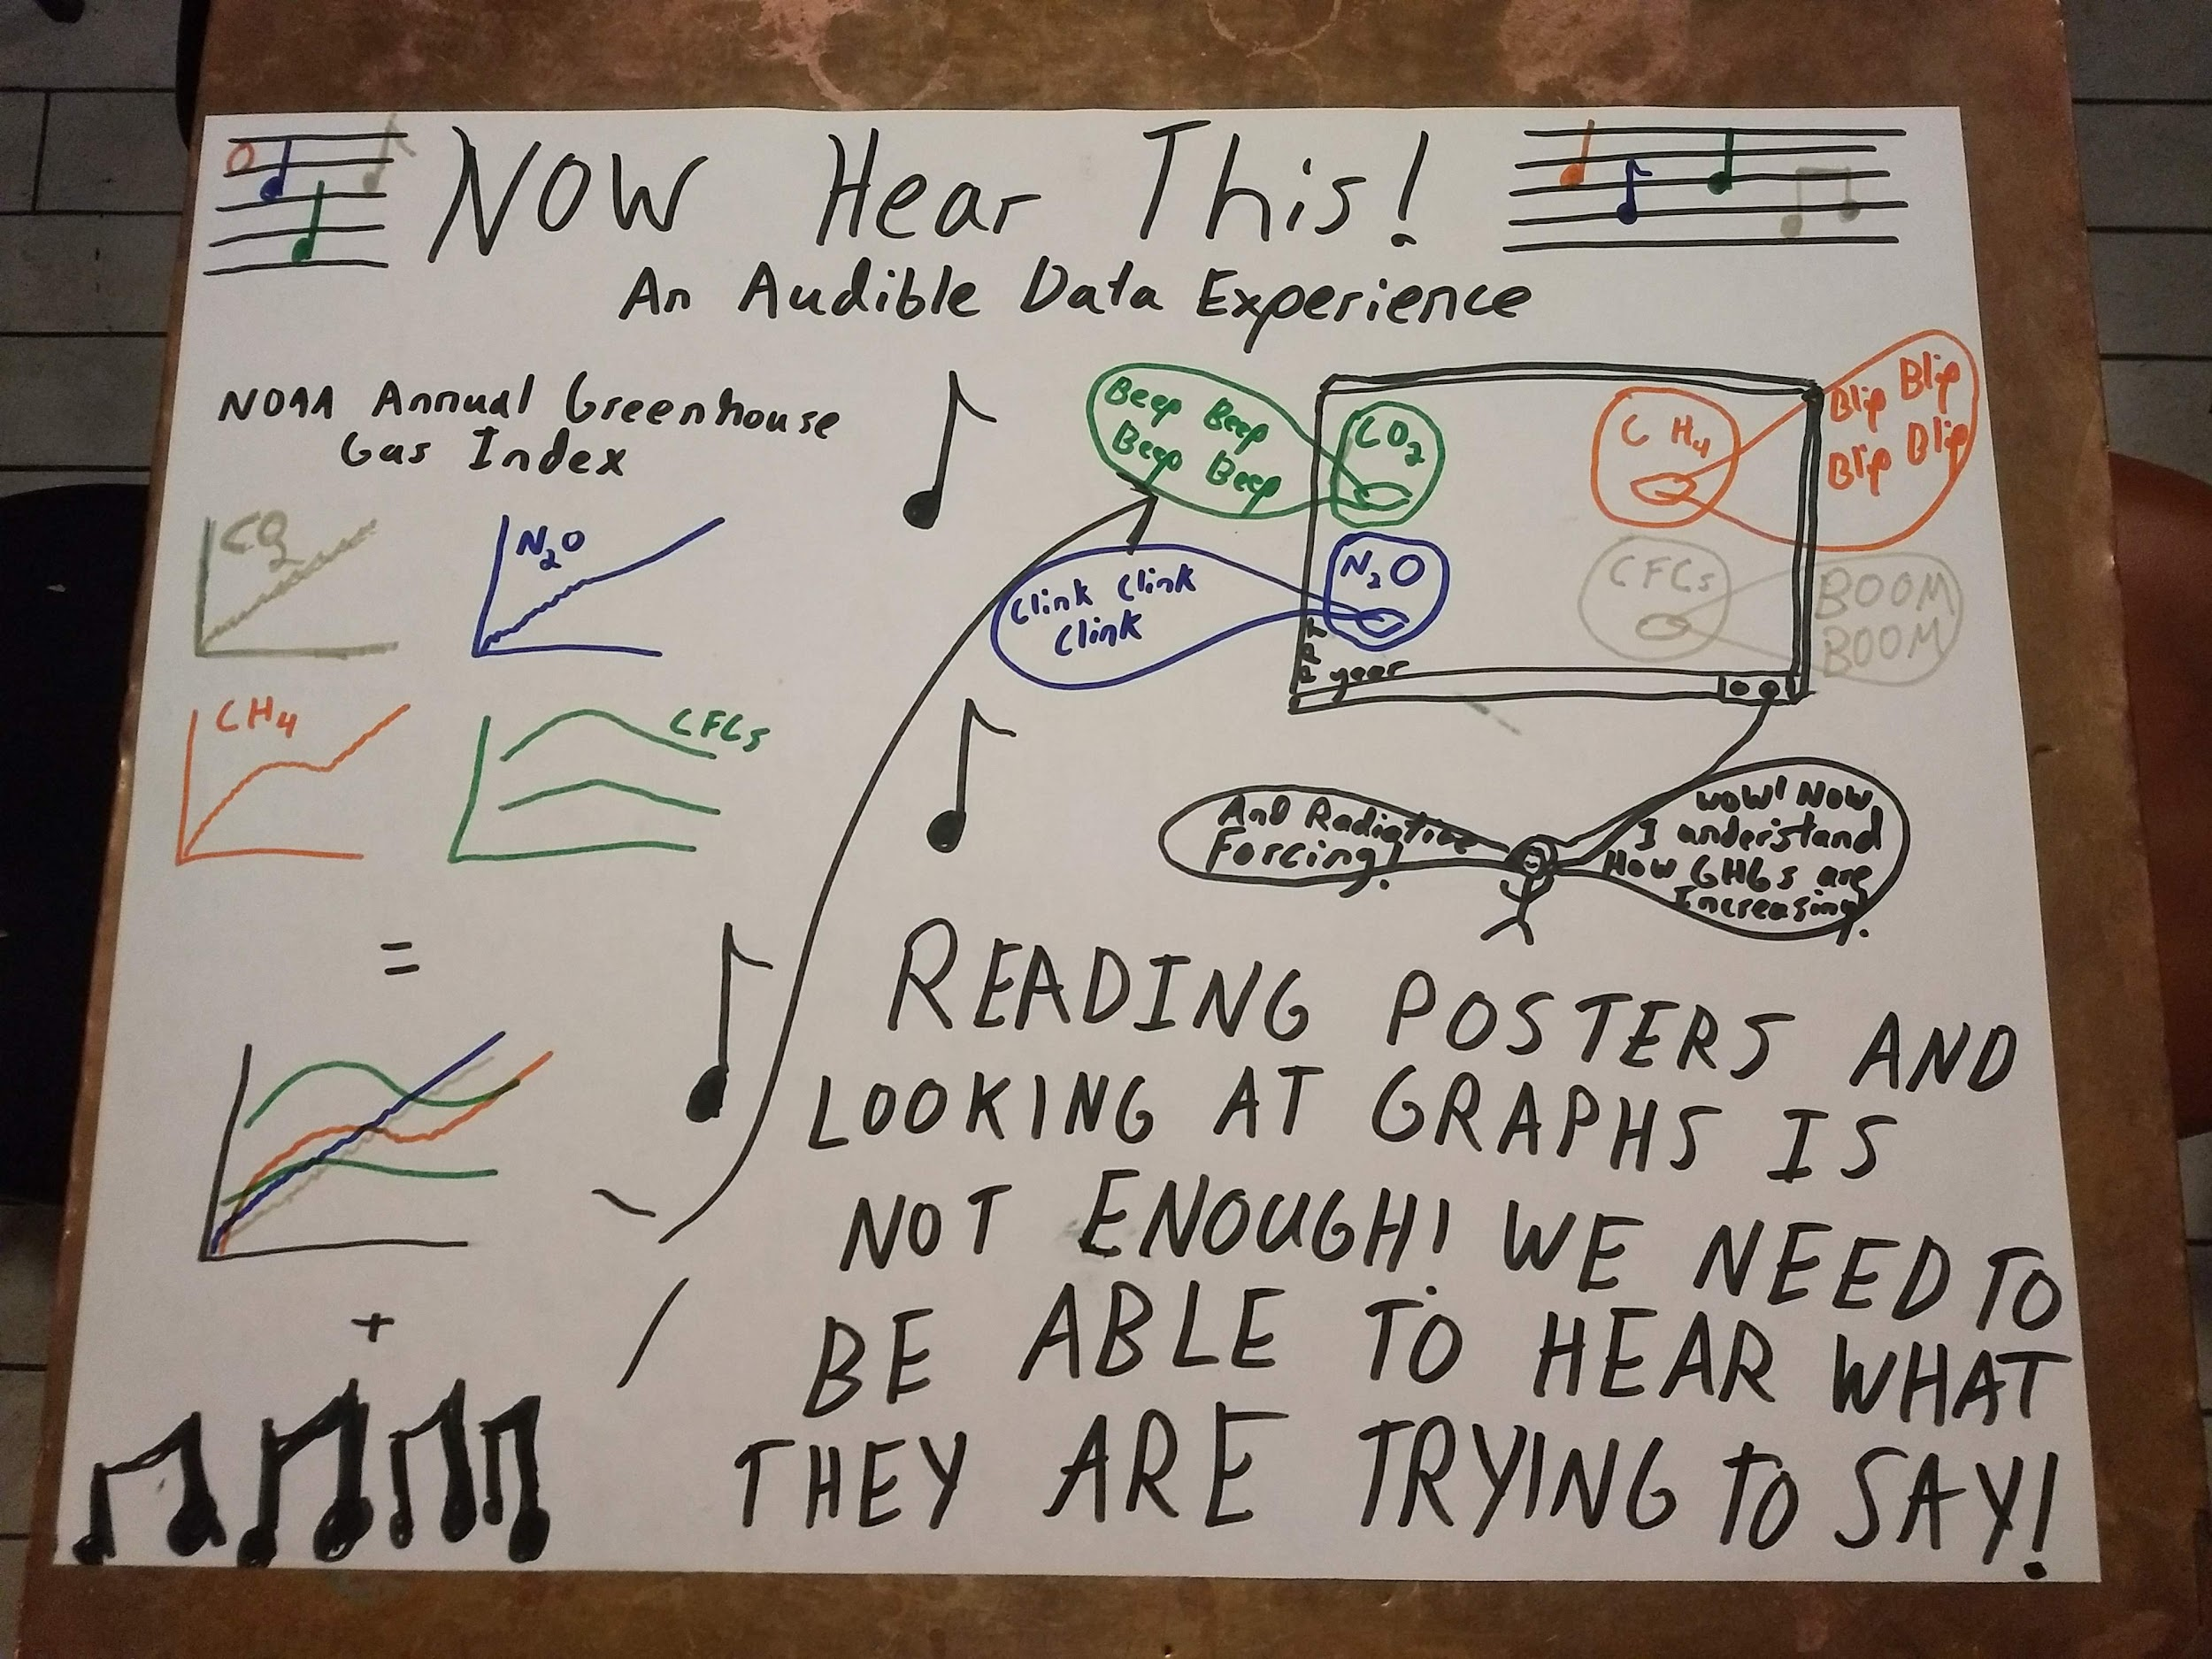 NOW Hear This!
An Audible Data Experience
NOAA Annual Greenhouse
Gas Index
CO2
N2O
CH4
CFCs
=
+
Beep Beep
Beep Beep
CO2
CH4
Blip Blip
Blip Blip
Clink Clink
Clink
N2O
CFCs
BOOM
BOOM
PPT
year
And Radiative
Forcing!
WOW! NOW,
I understand
How GHGs are
Increasing!
READING POSTERS AND
LOOKING AT GRAPHS IS
NOT ENOUGH! WE NEED TO
BE ABLE TO HEAR WHAT
THEY ARE TRYING TO SAY!